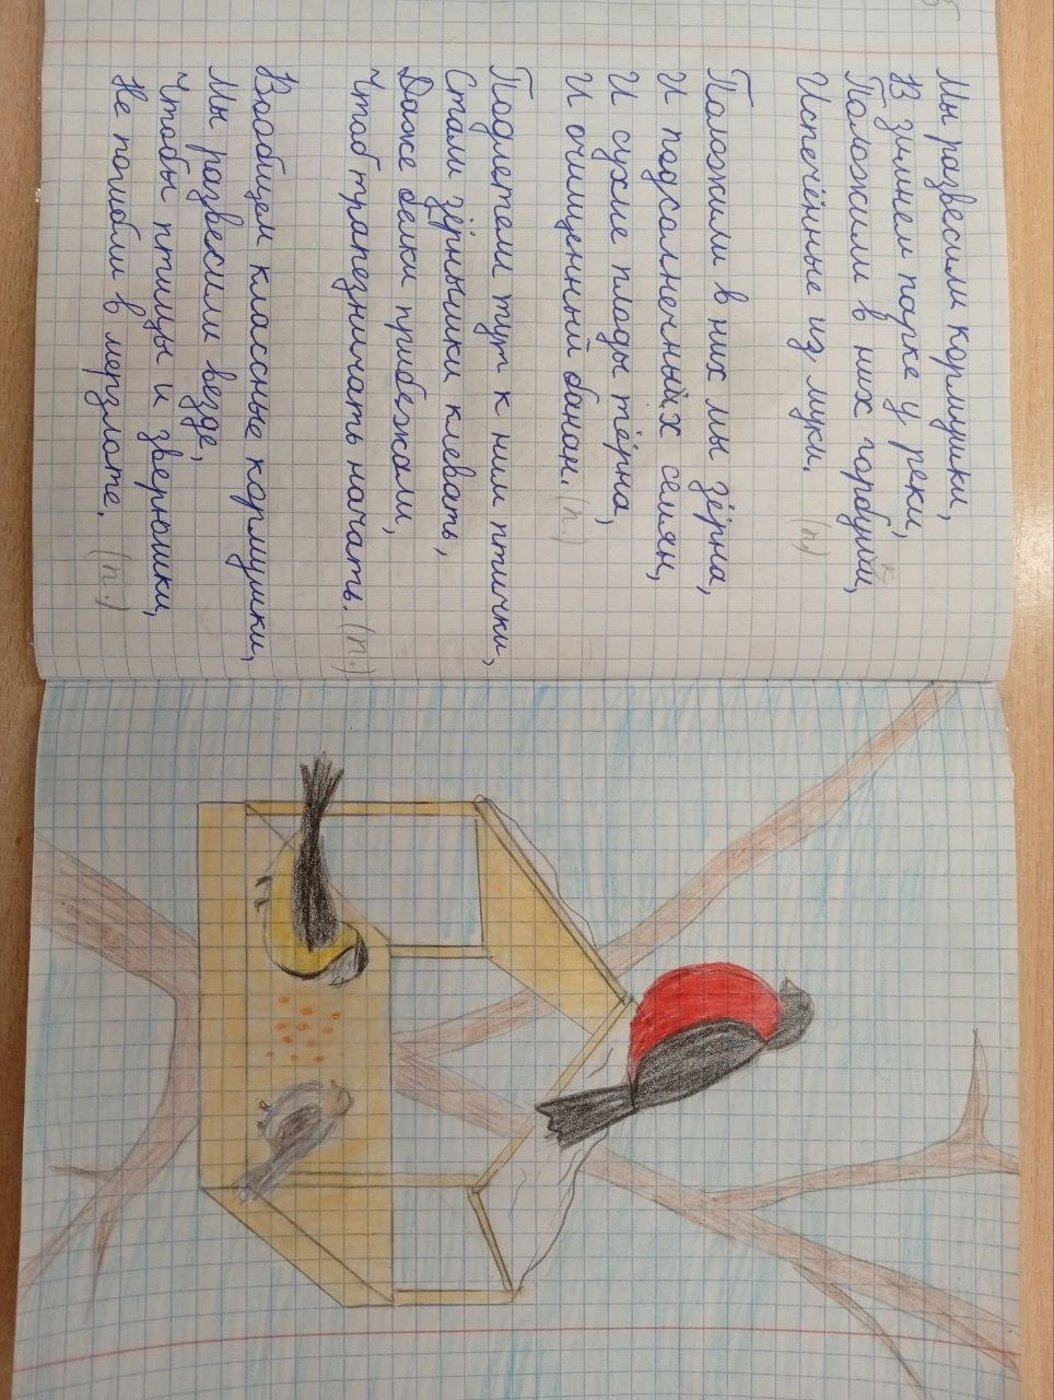 Мы развесили кормушки,
В зимнем парке у реки,
Положили в них горбушки,
Испечённые из муки. (п)
Положили в них мы зёрна,
И подсолнечных семян,
И сухие плоды тёрна,
И очищенный банан. (п.)
Подлетели тут к ним птички,
Стали зёрнышки клевать,
Даже белки прибежали,
Чтоб трапезничать начать. (п.)
Вообщем классные кормушки,
Мы развесили везде,
Чтобы птицы и зверюшки,
Не погибли в мерзлоте. (п.)